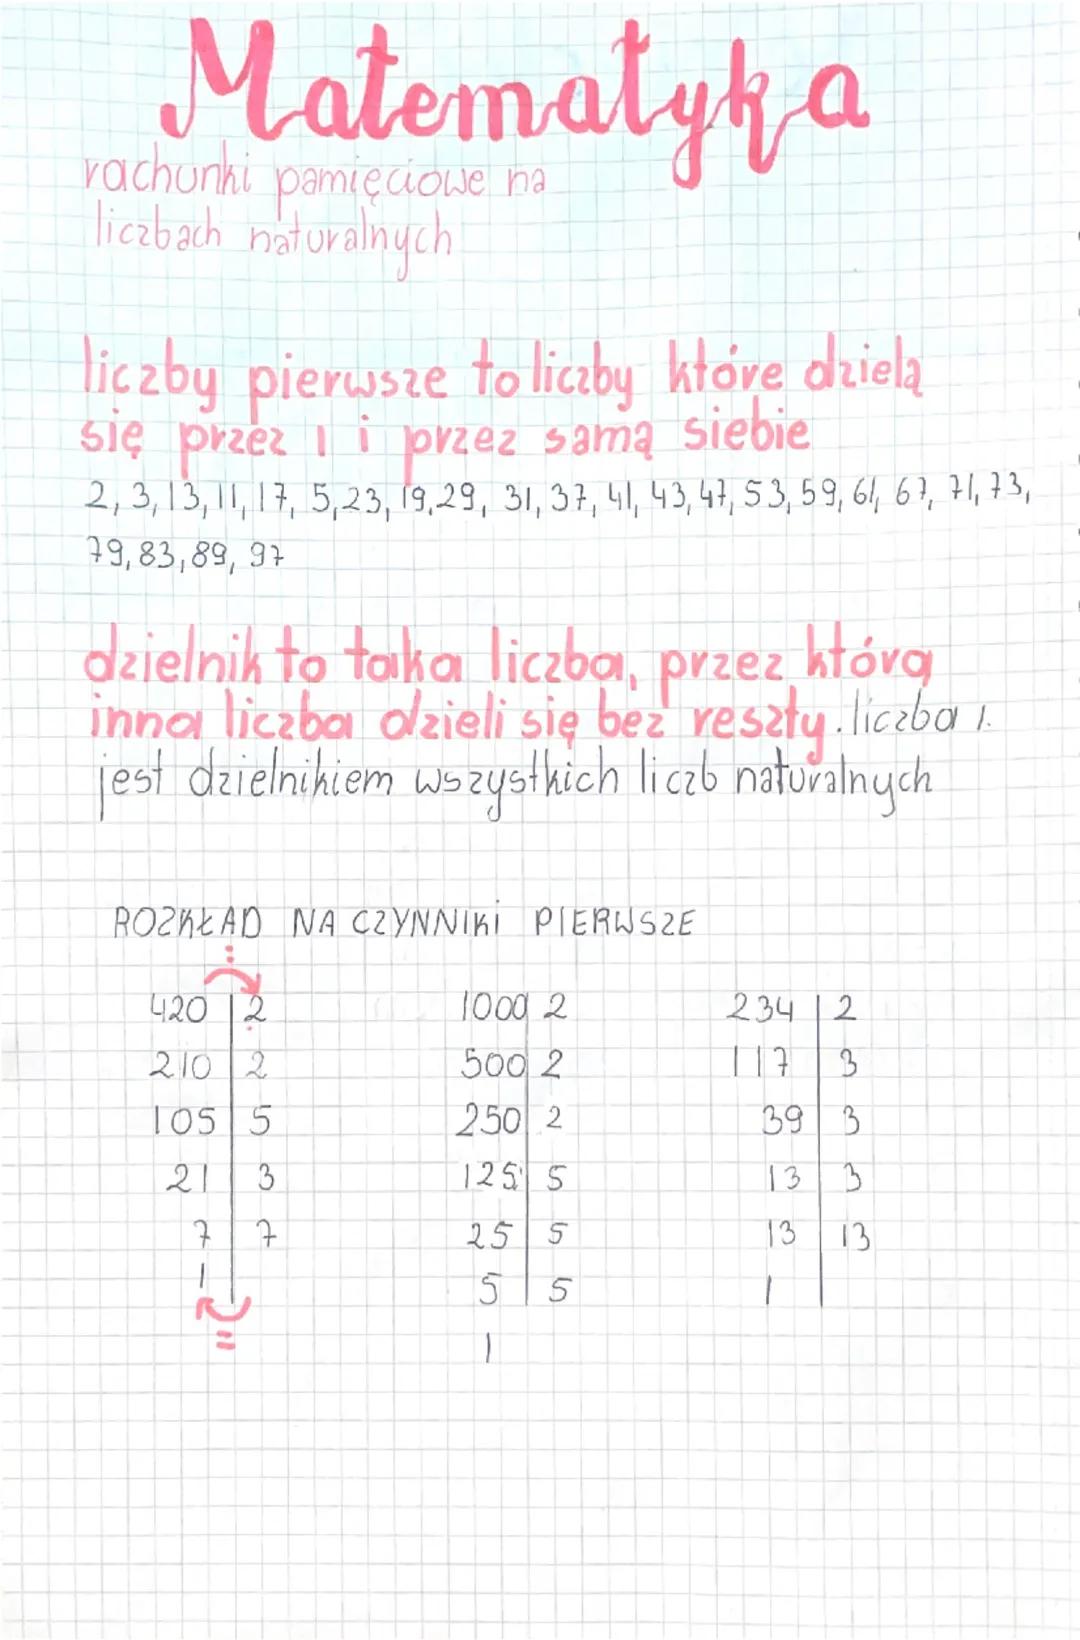 Matematyka
rachunki pamięciowe na
liczbach naturalnych
liczby pierwsze to liczby które dzielą
się przez 1 i przez samą siebie
2, 3, 13, 11, 17, 5, 23, 19, 29, 31, 37, 41, 43, 47, 53, 59, 61, 67, 71, 73,
79, 83, 89, 97
dzielnik to taka liczba, przez którą
inna liczba dzieli się bez reszty. liczba 1.
jest dzielnikiem wszystkich liczb naturalnych
ROZKŁAD NA CZYNNIKI PIERWSZE
:
420 | 2 1000 | 2 234 | 2
210 | 2 500 | 2 117 | 3
105 | 5 250 | 2 39 | 3
21 | 3 125 | 5 13 | 3
7 | 7 25 | 5 13 | 13
1 | 5 | 5 1 |
=
1